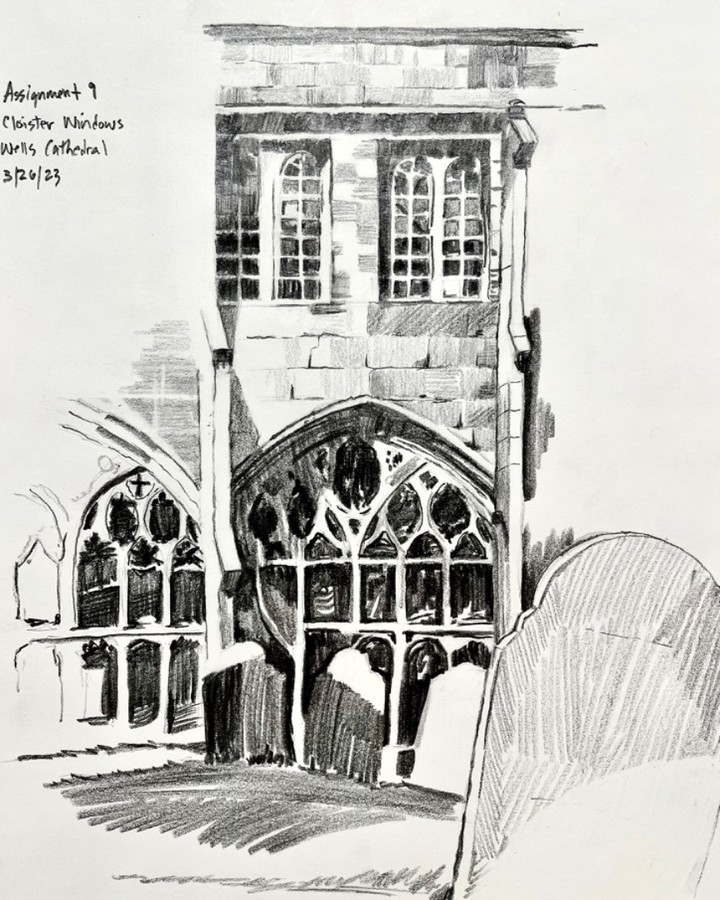 Assignment 9
Cloister Windows
Wells Cathedral
3/26/23